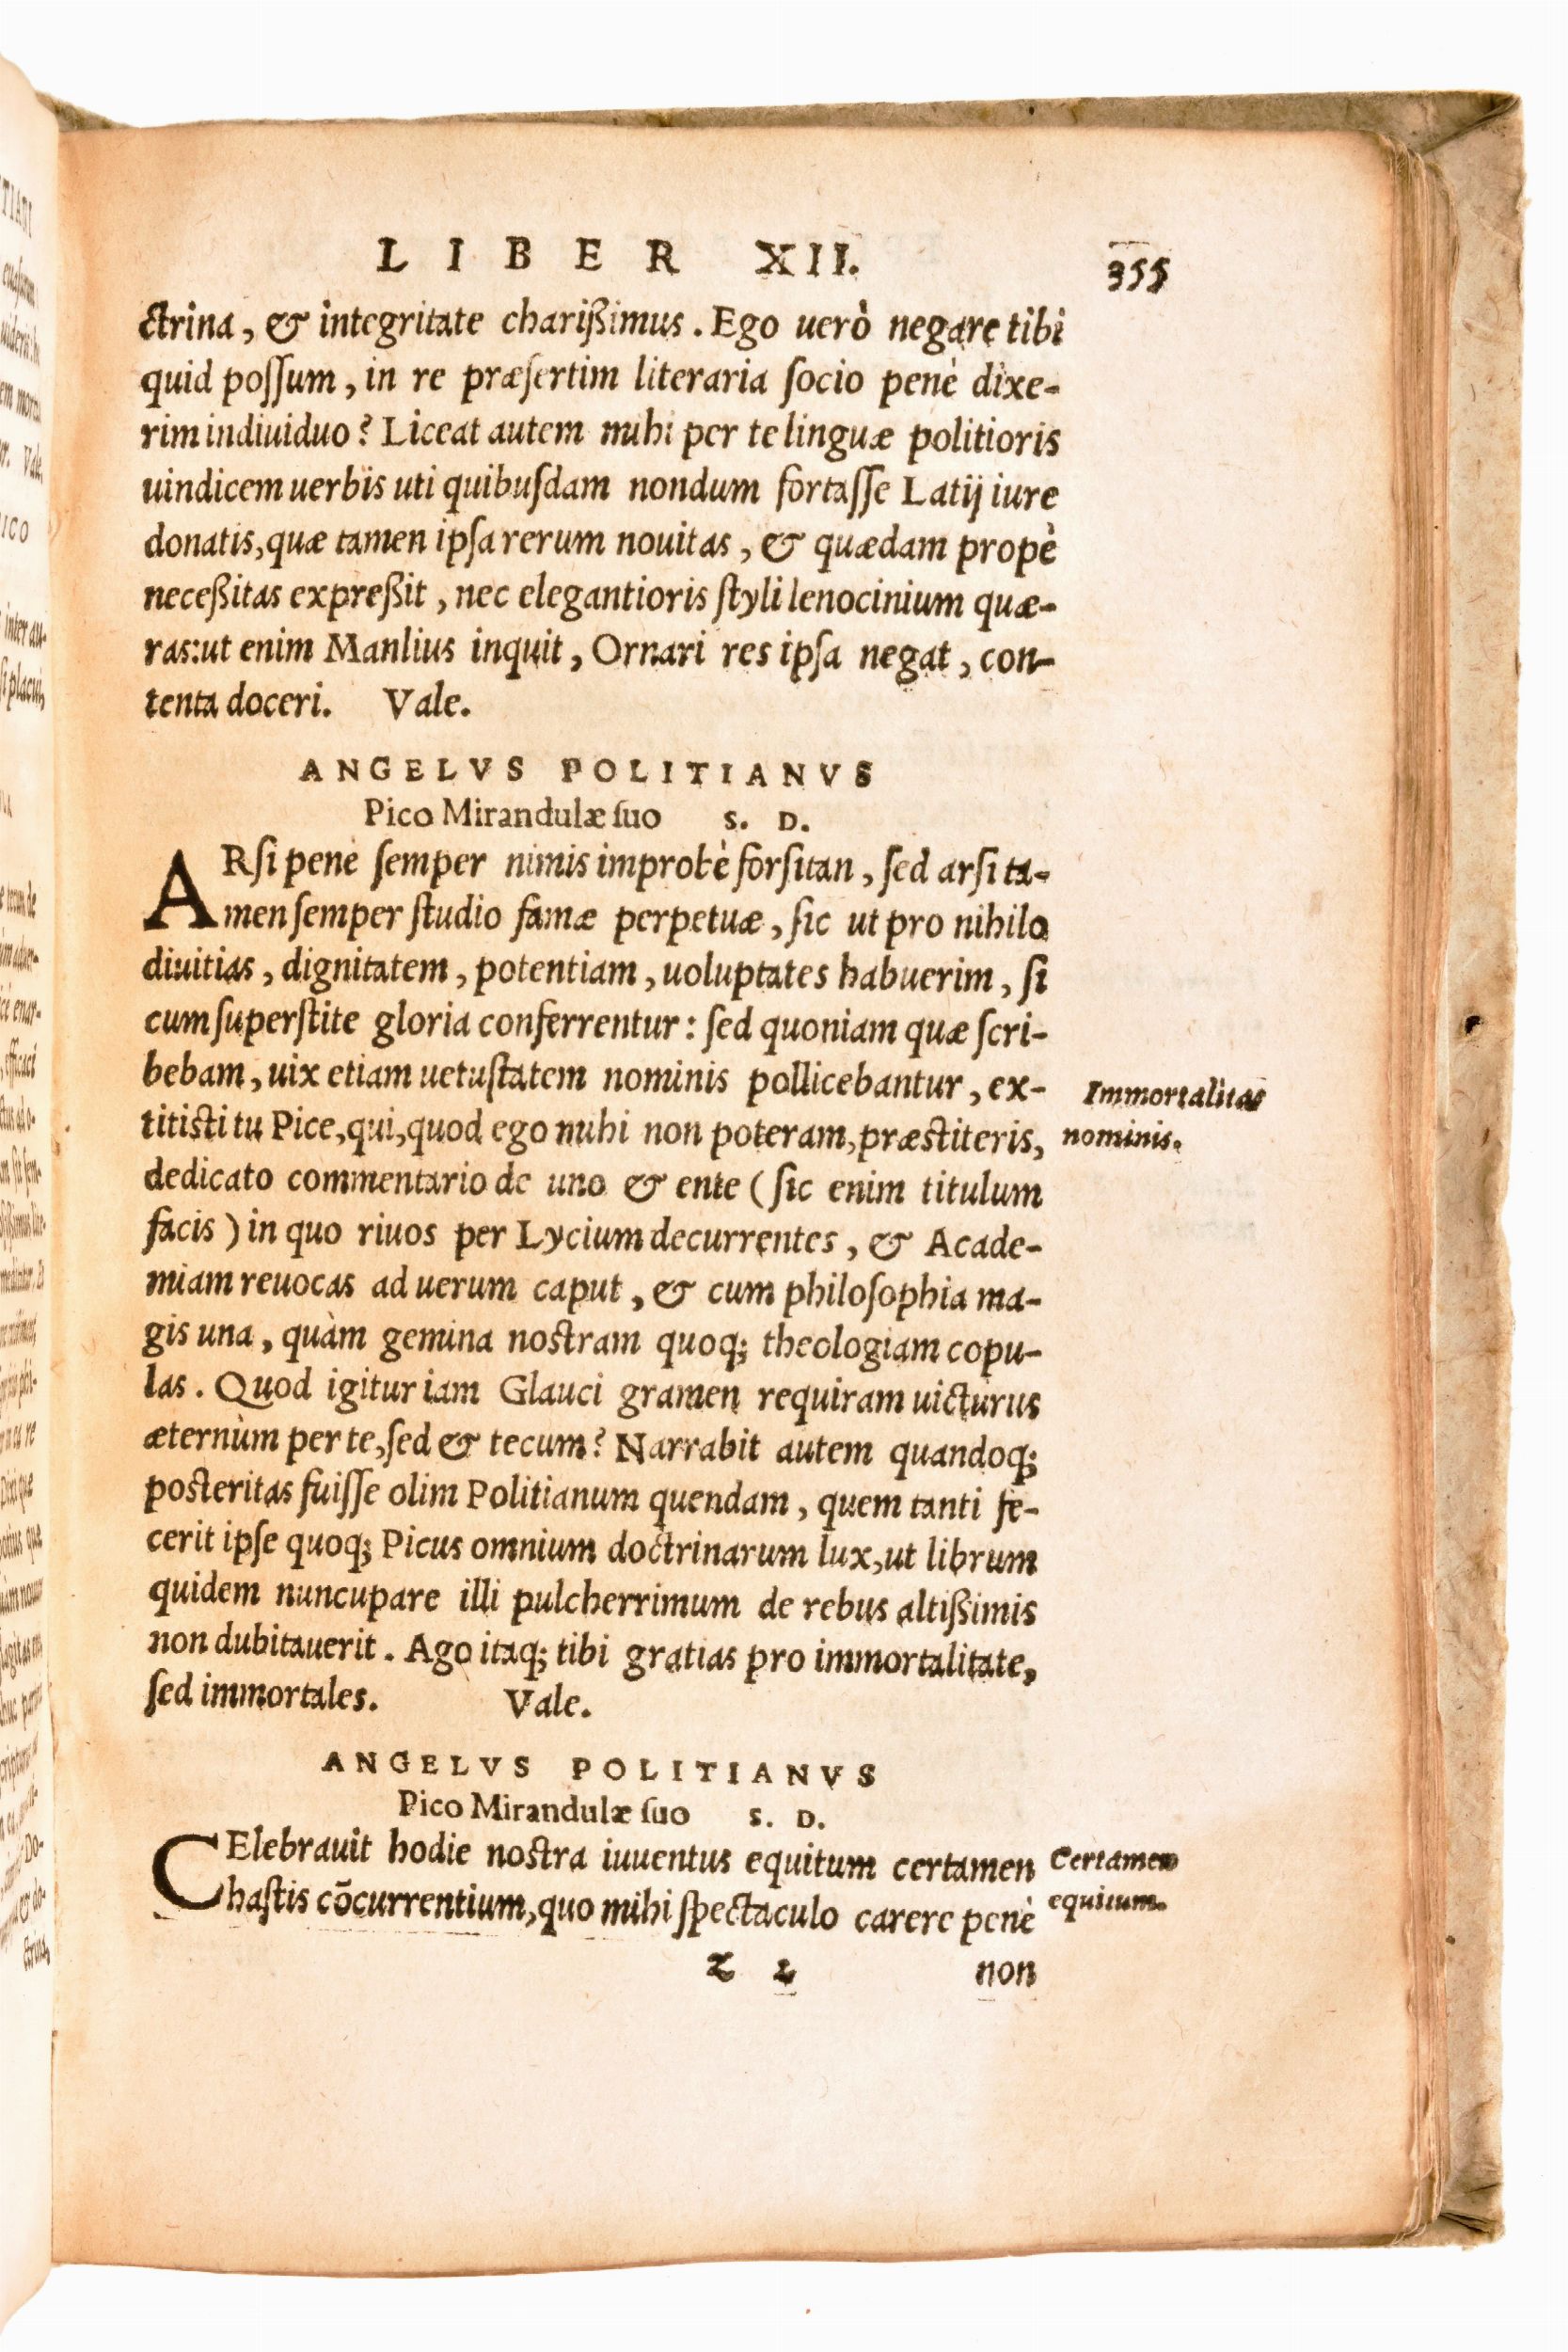 LIBER XII. 355
ctrina, & integritate charißimus. Ego uerò negare tibi
quid poſſum, in re præſertim literaria ſocio penè dixe-
rim indiuiduo? Liceat autem mihi per te linguæ politioris
uindicem uerbis uti quibuſdam nondum fortaſſe Latij iure
donatis, quæ tamen ipſa rerum nouitas, & quædam propè
neceßitas expreßit, nec elegantioris ſtyli lenocinium quæ-
ras: ut enim Manlius inquit, Ornari res ipſa negat, con-
tenta doceri. Vale.
ANGELVS POLITIANVS
Pico Mirandulæ ſuo S. D.
ARſi penè ſemper nimis improbè forſitan, ſed arſi ta-
men ſemper ſtudio famæ perpetuæ, ſic ut pro nihilo
diuitias, dignitatem, potentiam, uoluptates habuerim, ſi
cum ſuperſtite gloria conferrentur: ſed quoniam quæ ſcri-
bebam, uix etiam uetuſtatem nominis pollicebantur, ex-
titiſti tu Pice, qui, quod ego mihi non poteram, præſtiteris,
dedicato commentario de uno & ente (ſic enim titulum
facis) in quo riuos per Lycium decurrentes, & Acade-
miam reuocas ad uerum caput, & cum philoſophia ma-
gis una, quàm gemina noſtram quoq; theologiam copu-
las. Quod igitur iam Glauci gramen requiram uicturus
æternùm per te, ſed & tecum? Narrabit autem quandoq;
poſteritas fuiſſe olim Politianum quendam, quem tanti fe-
cerit ipſe quoq; Picus omnium doctrinarum lux, ut librum
quidem nuncupare illi pulcherrimum de rebus altißimis
non dubitauerit. Ago itaq; tibi gratias pro immortalitate,
ſed immortales. Vale.
Immortalitas
nominis.
ANGELVS POLITIANVS
Pico Mirandulæ ſuo S. D.
CElebrauit hodie noſtra iuuentus equitum certamen
haſtis cōcurrentium, quo mihi ſpectaculo carere penè
Certamen
equitum.
z 2 non